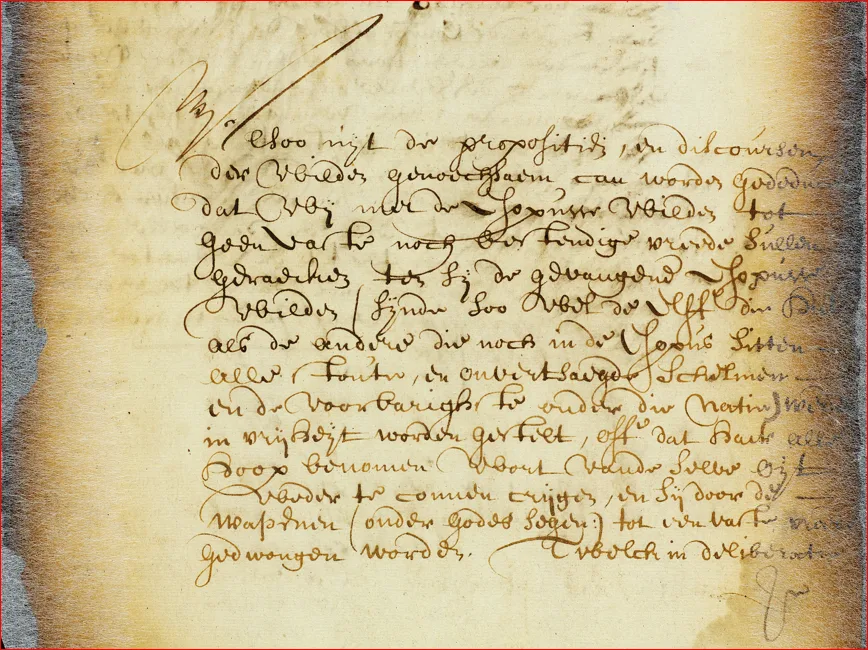 Alsoo uijt de propositien, en discoursen
der Wilden genoechsaem can worden gededuc
dat Wij met de Esopusse Wilden tot
geen vaste noch bestendige vreede sullen
geraecken, ten sij de gevangene Esopusse
Wilden (sijnde soo wel de Elff die
als de andere die noch in de Esopus sitten
alle stoute, en onversaegde Schelmen
en de voorbarighste onder die Natie) wed
in vrijheijt worden gestelt, off dat haer alle
hoop benomen wort vande selve oijt
weder te connen crijgen, en sij door de
wapenen (onder Godes segen:) tot een vaste vree
gedwongen worden. Twelck in deliberatie